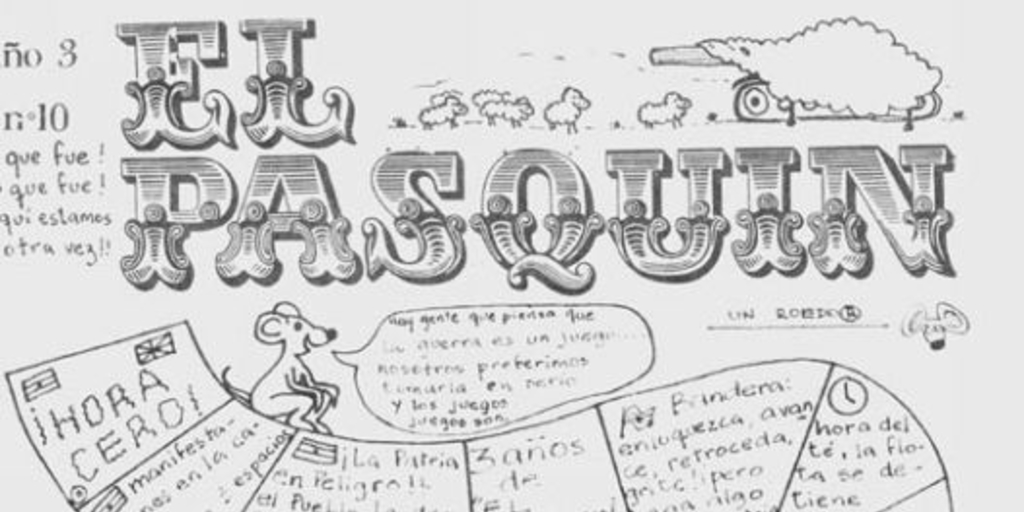 ño 3
nº10
que fue!
que fue!
quí estamos
otra vez!!
EL
PASQUIN
UN ROEDOR
hay gente que piensa que
la guerra es un juego....
nosotros preferimos
tomarla en serio
y los juegos
juegos son.
¡HORA
CERO!
manifesta-
nes en la ca-
espacio
¡La Patria
en Peligro!!
el Pueblo
3 años
de
"EL
Bandera:
enloquezca, avan
ce, retroceda,
grite! pero
algo
hora del
té, la flo-
ta se de-
tiene